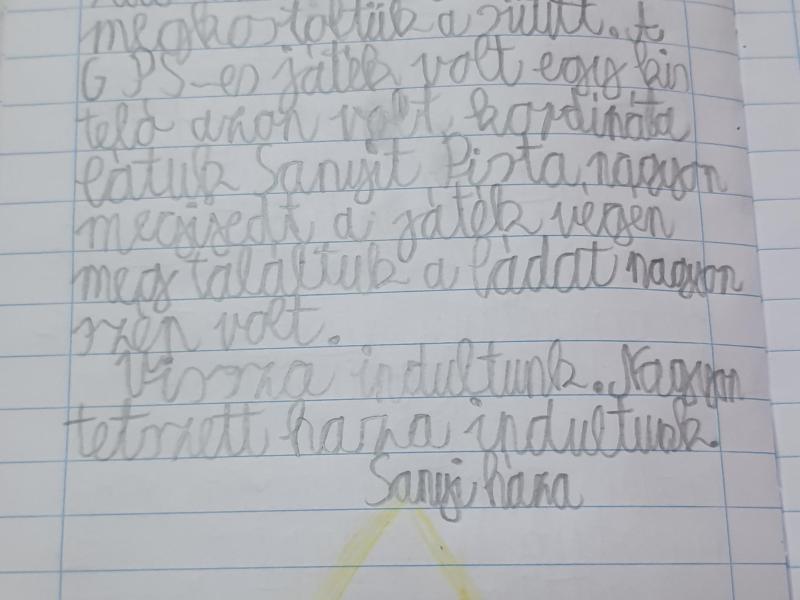 megkostoltük a sütit. A
GPS-es játék volt egy kin
teló anon volt kordináta
látuk Sanyit Pista, nagyon
megijedt a játék vergen
meg talaltuk a ládat nagyon
szép volt.
Vissza indultunk. Nagyon
tetszett haza indultunk.
Sanyi háza